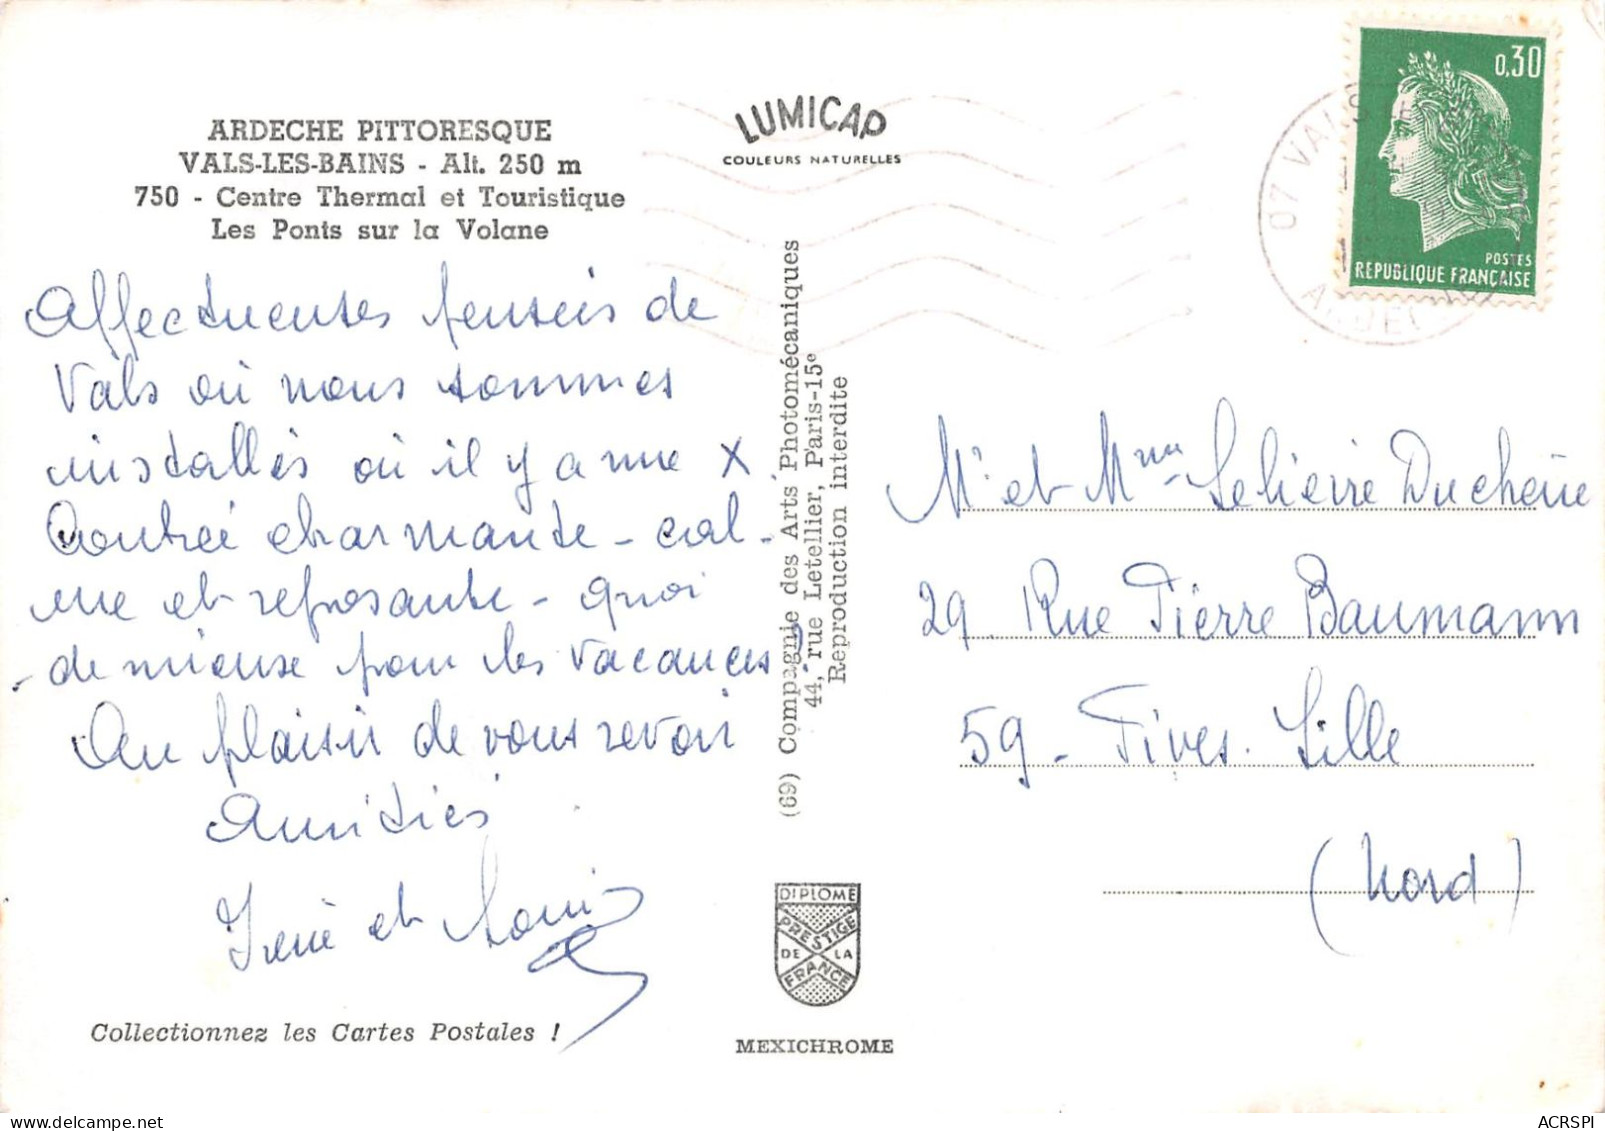 ARDECHE PITTORESQUE
VALS-LES-BAINS - Alt. 250 m
750 - Centre Thermal et Touristique
Les Ponts sur la Volane
Affectueuses pensées de
Vals où nous sommes
installés où il y a une X
Contrée charmante - cal-
me et reposante - quoi
de mieux pour les vacances?
Au plaisir de vous revoir
Amitiés
Irène et Louis
Collectionnez les Cartes Postales !
LUMICAP
COULEURS NATURELLES
(69) Compagnie des Arts Photomécaniques
44, rue Letellier, Paris-15e
Reproduction interdite
DIPLOME
PRESTIGE
DE LA
FRANCE
MEXICHROME
0,30
POSTES
REPUBLIQUE FRANÇAISE
07 VALS
Mr et Mme Lelièvre Duchêne
29 Rue Pierre Baumann
59 - Fives. Lille
(Nord)
ACRSPI